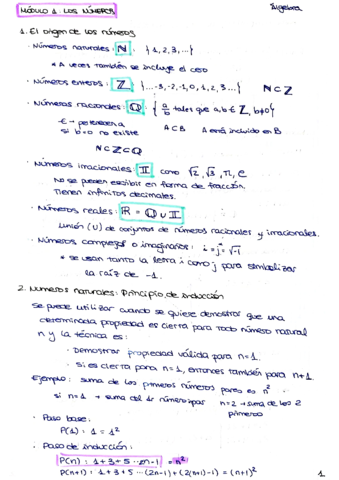 MÓDULO 1: LOS NÚMEROS
Álgebra
1. El origen de los números
· Números naturales: ℕ : {1, 2, 3, ...}
* A veces también se incluye el cero
· Números enteros: ℤ {... -3, -2, -1, 0, 1, 2, 3 ...} ℕ ⊂ ℤ
· Números racionales: ℚ : { a/b tales que a, b ∈ ℤ, b≠0 }
∈ → pertenencia
si b=0 no existe
A ⊂ B A está incluido en B
ℕ ⊂ ℤ ⊂ ℚ
· Números irracionales: 𝕀 como √2, √3, π, e
No se pueden escribir en forma de fracción.
Tienen infinitos decimales.
· Números reales: ℝ = ℚ ∪ 𝕀
Unión (∪) de conjuntos de números racionales y irracionales.
· Números complejos o imaginarios: i = j = √-1
* se usan tanto la letra i como j para simbolizar
la raíz de -1.
2. Números naturales: Principio de inducción
Se puede utilizar cuando se quiere demostrar que una
determinada propiedad es cierta para todo número natural
n y la técnica es:
· Demostrar propiedad válida para n=1
· Si es cierta para n=1, entonces también para n+1
Ejemplo: suma de los primeros números pares es n²
si n=1 → suma del 1r número par n=2 → suma de los 2
primeros
· Paso base:
P(1): 1 = 1²
· Paso de inducción:
P(n): 1+3+5 ... 2n-1 = n²
P(n+1): 1+3+5 ... (2n-1) + (2(n+1)-1) = (n+1)²
1.